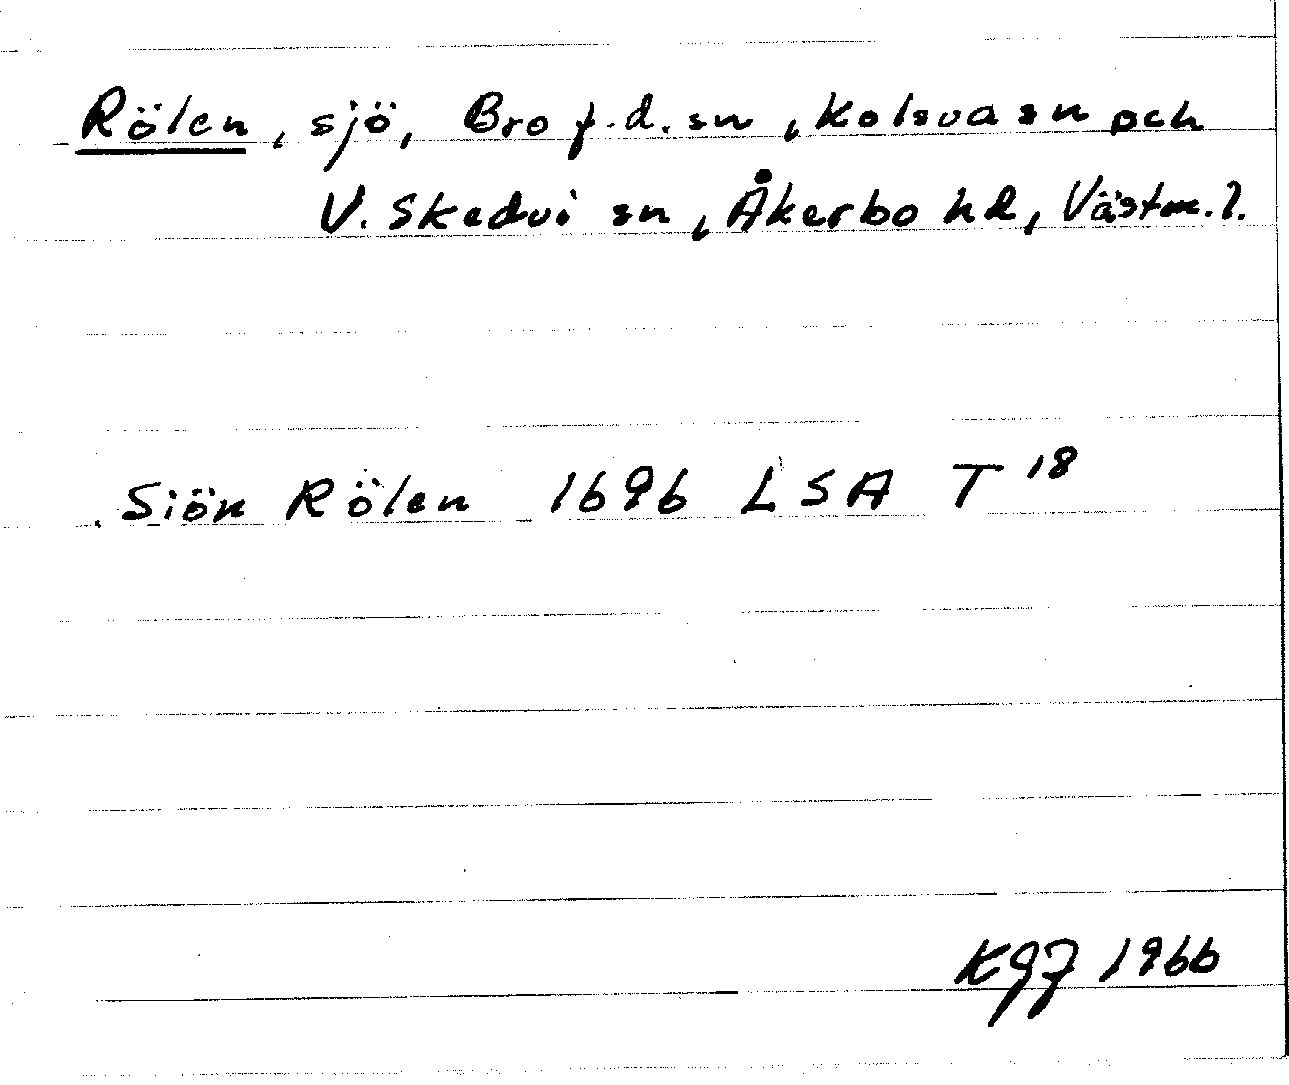 Rölen, sjö, Bro f.d. sn, Kolsva sn och
V. Skedvi sn, Åkerbo hd, Västm. l.
Siön Rölen 1696 LSA T 18
KgJ 1966